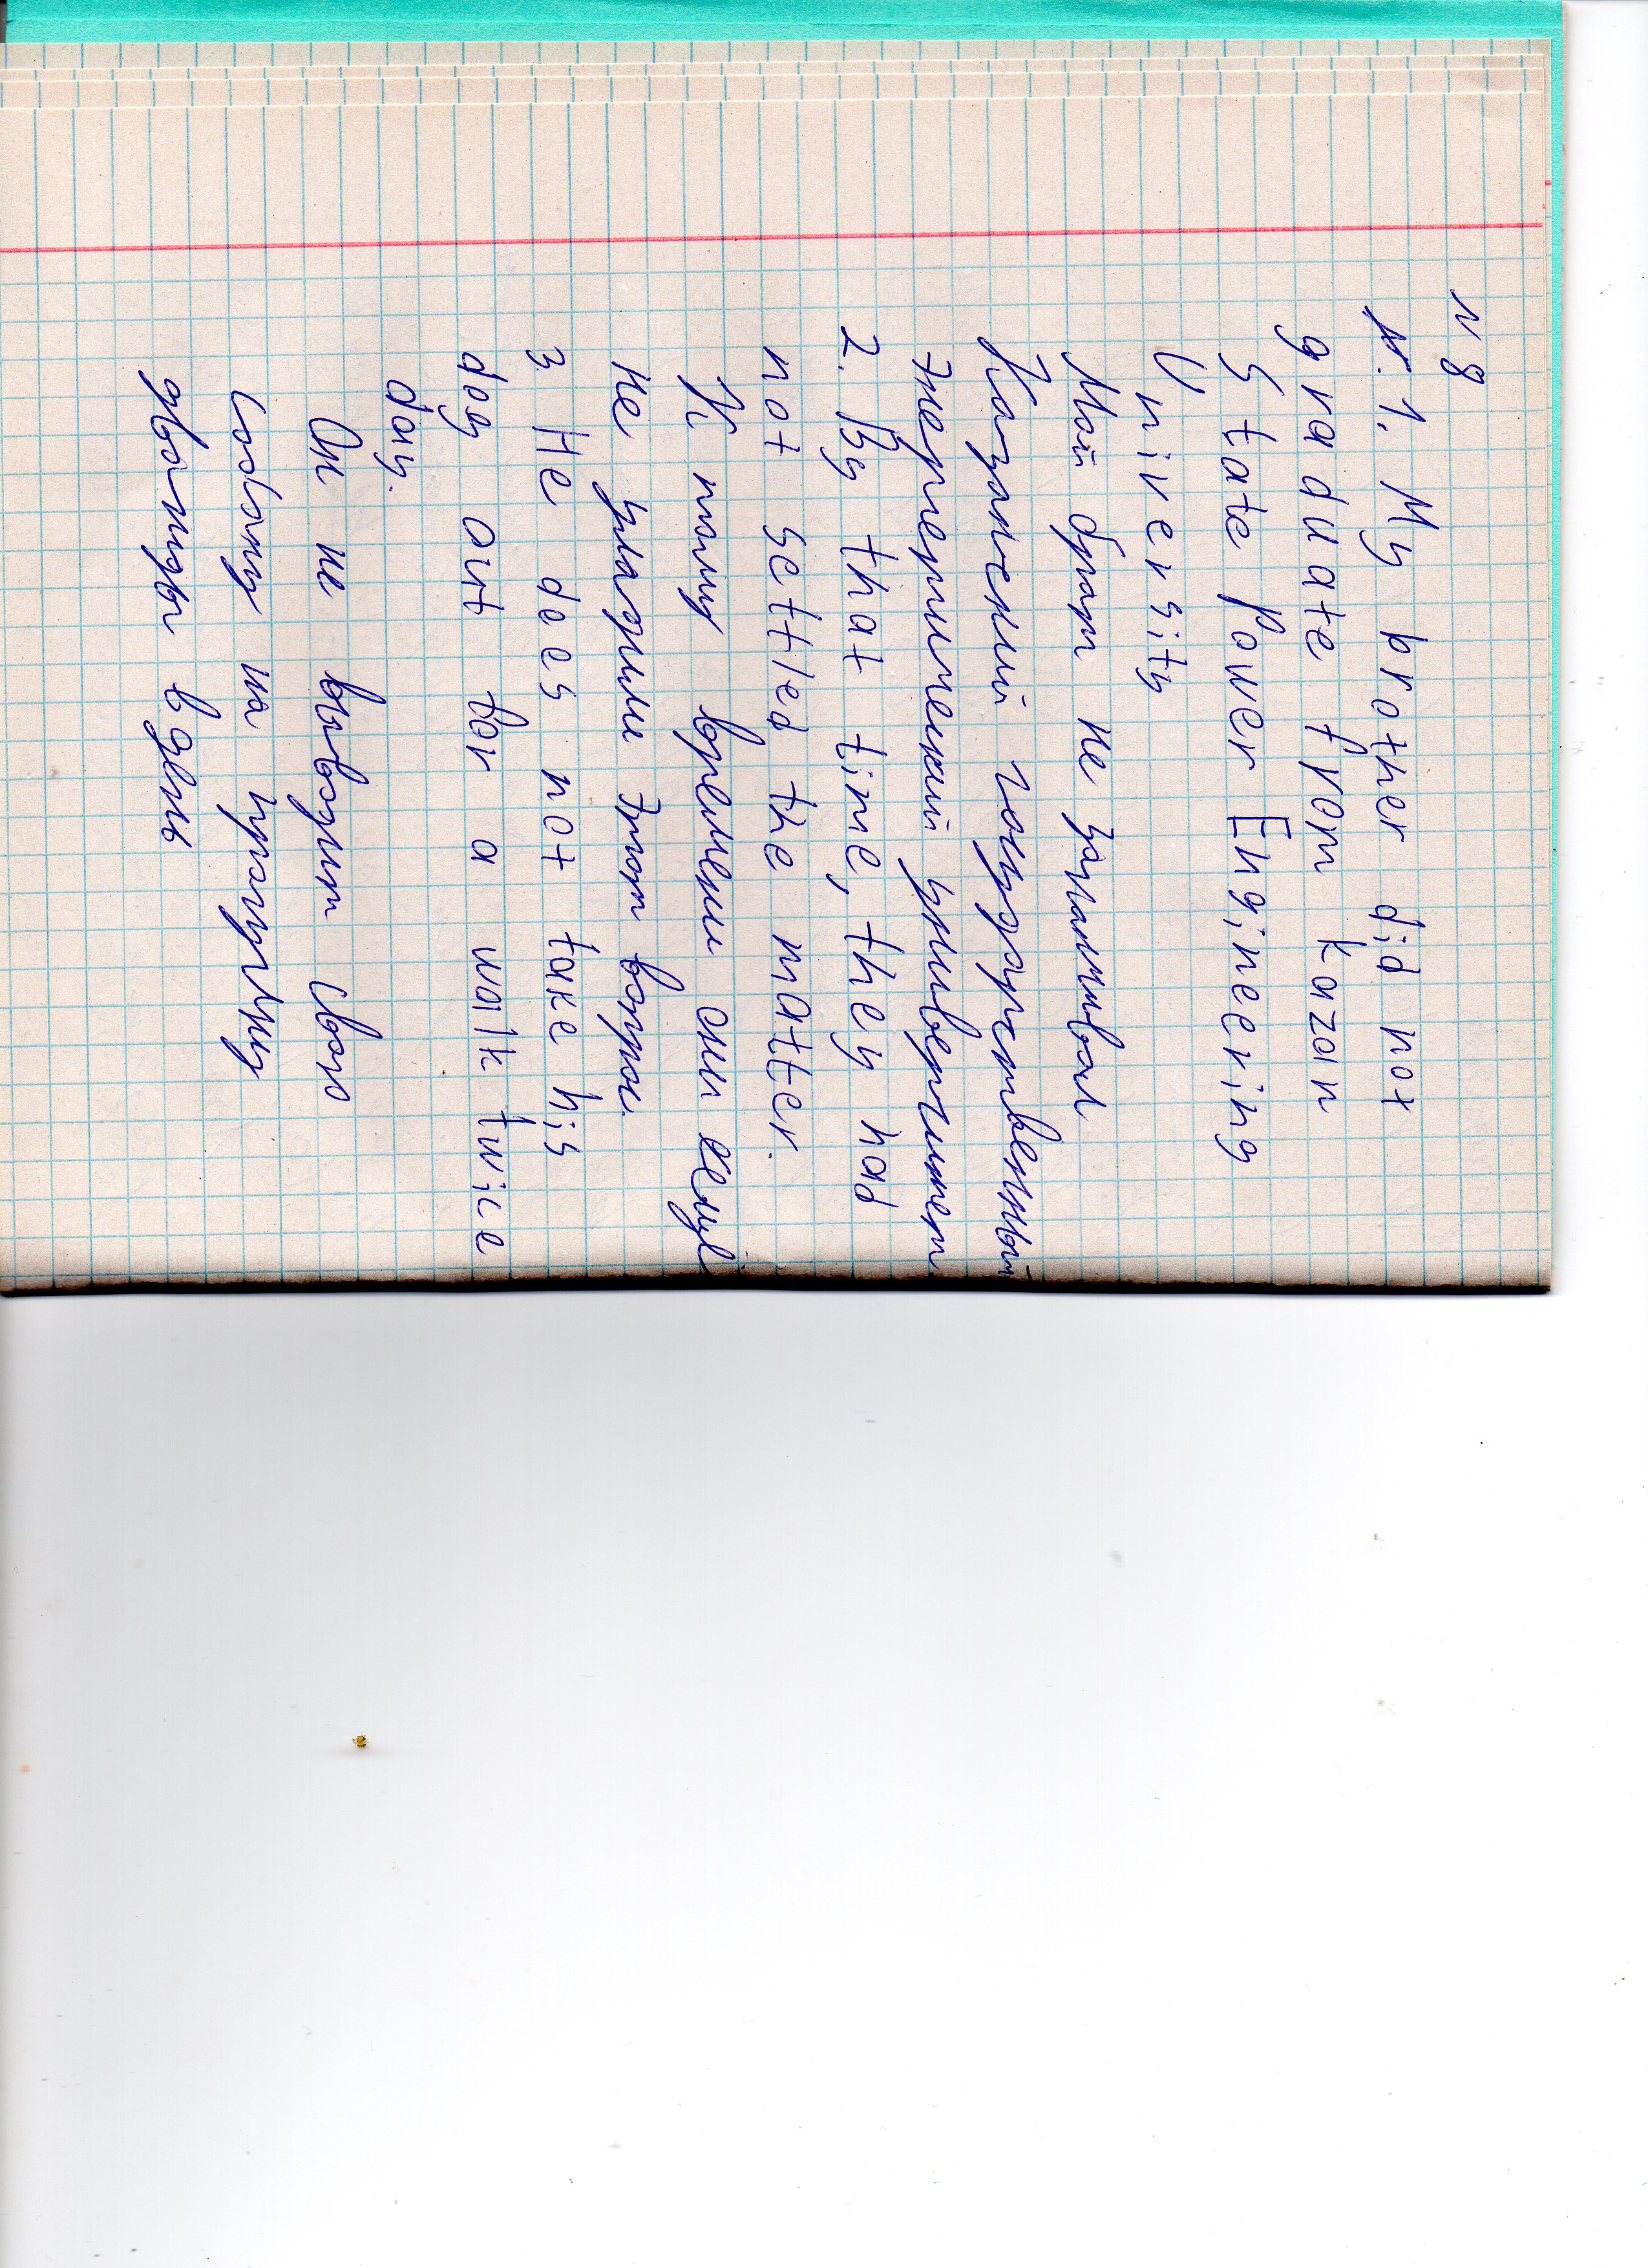 N 8
1. My brother did not
graduate from Kazan
State Power Engineering
University
Мой брат не заканчивал
Казанский государственный
Энергетический университет
2. By that time, they had
not settled the matter.
К тому времени они ещё
не уладили этот вопрос.
3 He does not take his
dog out for a walk twice
day.
Он не выводит свою
собаку на прогулку
дважды в день